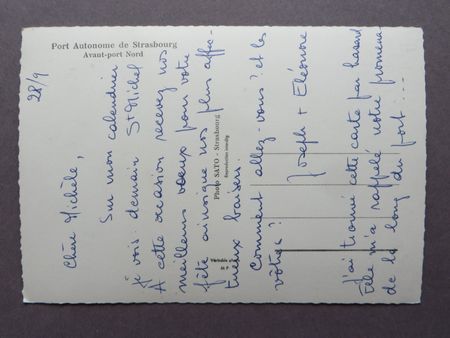 Port Autonome de Strasbourg
Avant-port Nord
28/9
Chère Michèle,
Sur mon calendrier
je vois: demain St Michel
A cette occasion recevez nos
meilleurs voeux pour votre
fête ainsi que nos plus affec-
tueux baisers.
Comment allez-vous? et les
vôtres?
Joseph + Eléonore
J'ai trouvé cette carte par hasard
elle m'a rappelé notre promenade
de la long du port....
Photo SATO - Strasbourg
Reproduction interdite
Véritable